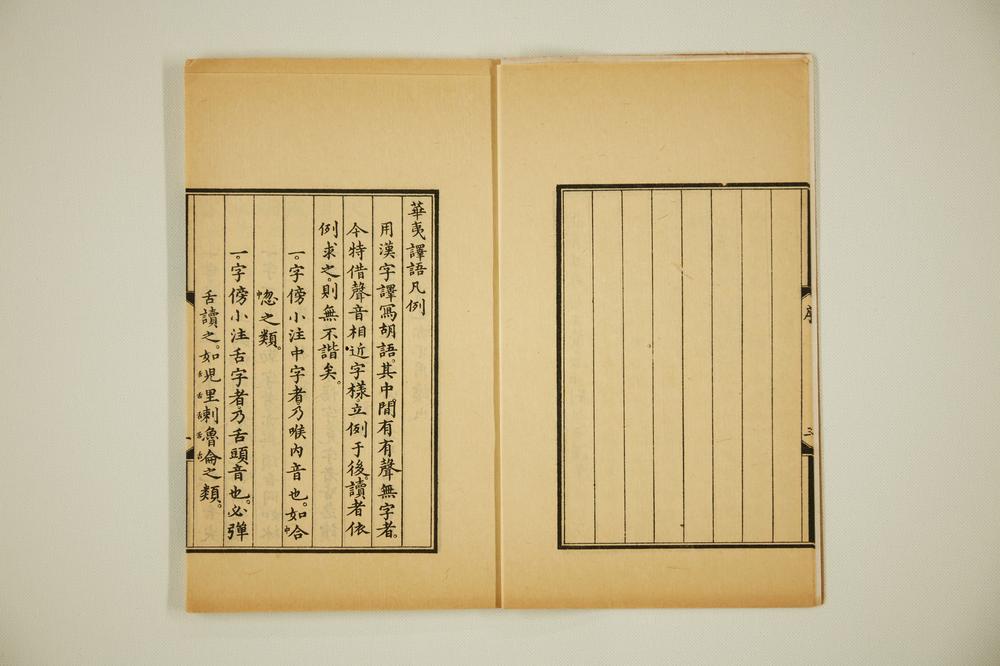 華夷譯語凡例
用漢字譯寫胡語。其中間有有聲無字者。
今特借聲音相近字樣。立例于後。讀者依
例求之。則無不諧矣。
一。字傍小注中字者。乃喉內音也。如中合
中惚之類。
一。字傍小注舌字者。乃舌頭音也。必彈
舌讀之。如舌兒舌里舌剌舌魯舌侖之類。